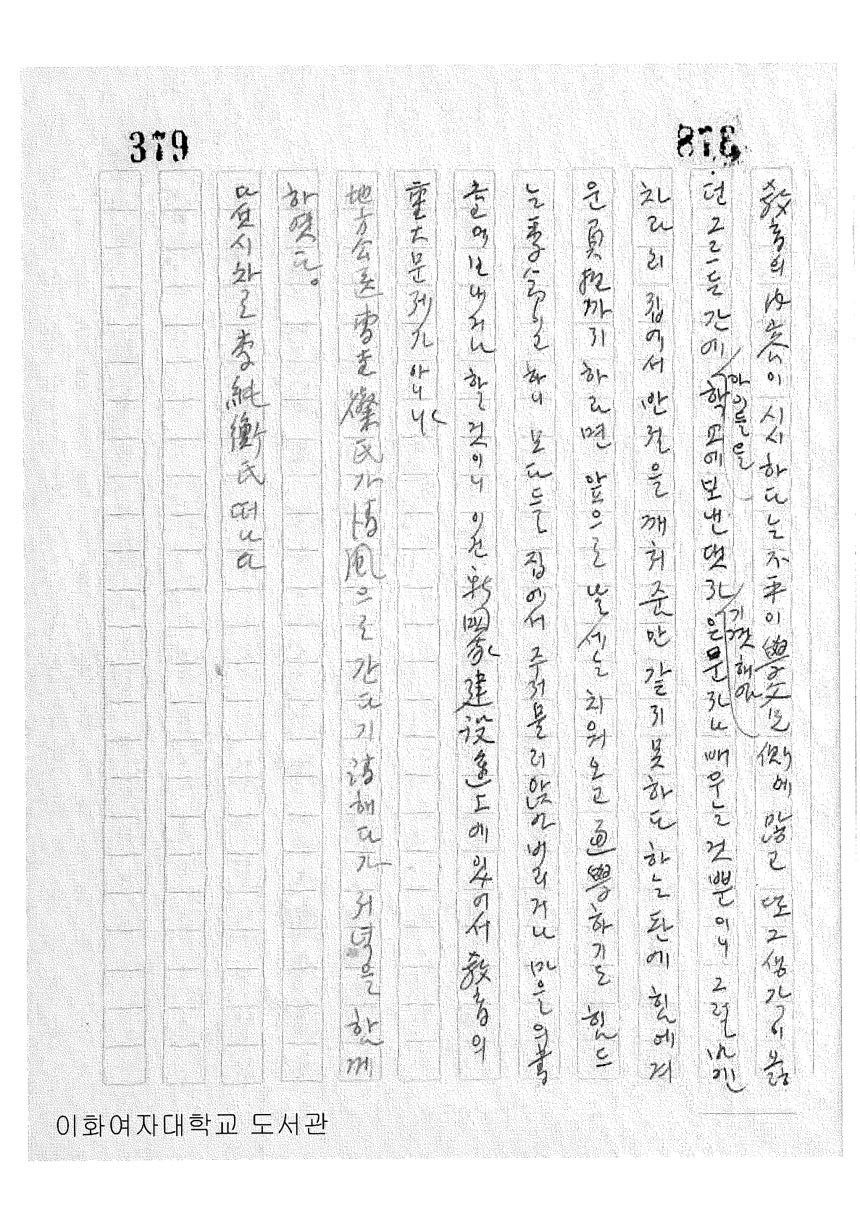 379
378
敎育의 內容이 시시하다는 不平이 學父兄側에 많고 또 그 생각이 옳
던 그르든 간에 아이들을 학교에 보낸댓자 기껏해야 배우는 것 뿐이니 그럴 바엔
차라리 집에서 반절을 깨쳐준만 같지 못하다 하는 판에 힘에 겨
운 負担까지 하랴면 앞으로 날세는 치워오고 通學하기도 힘드
는 季節이고 하니 모다들 집에서 주저물러앉아버리거나 마을 의
줄역 보내거나 할 것이니 이건 新國家建設途上에 있어서 敎育의
重大문제가 아니냐
地方公医 曺圭燦氏가 淸風으로 간다기 請해다가 저녁을 함께
하였다.
다섯시차로 李純衡氏 떠나다
이화여자대학교 도서관